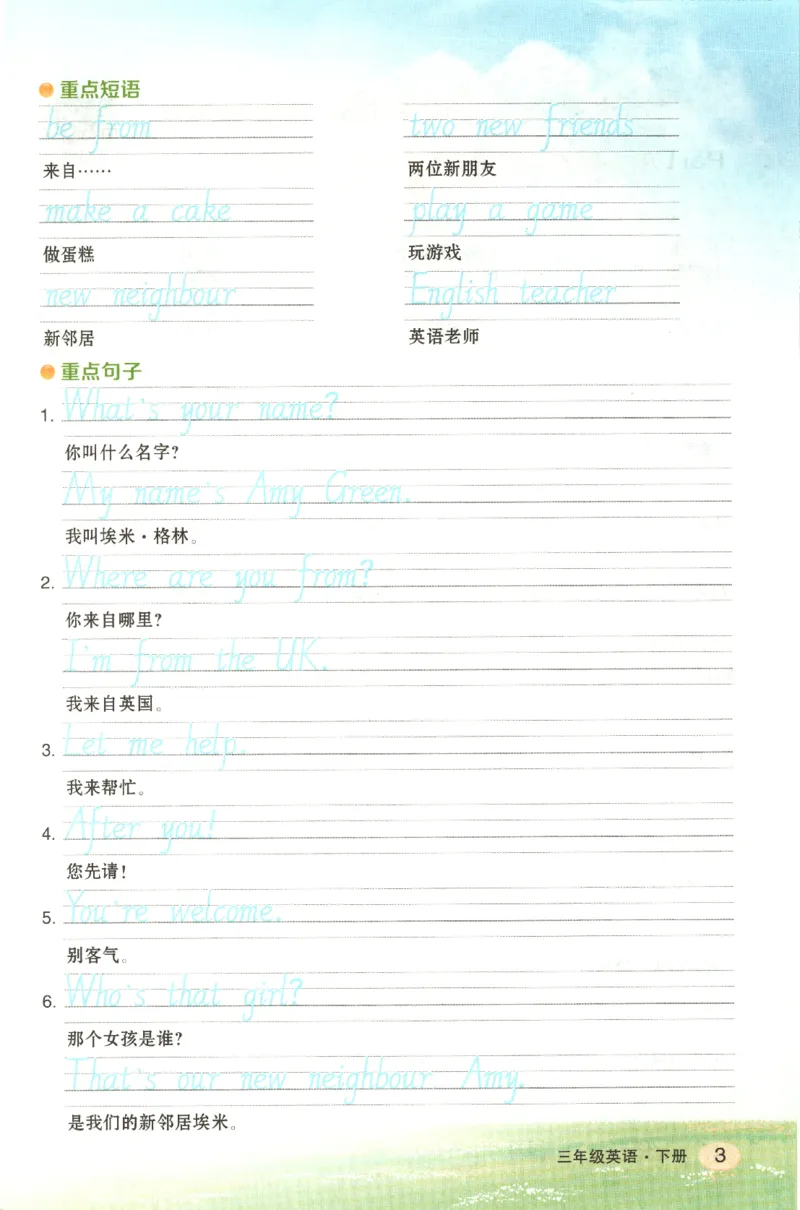 重点短语
be from
two new friends
来自……
两位新朋友
make a cake
play a game
做蛋糕
玩游戏
new neighbour
English teacher
新邻居
英语老师
重点句子
1. What's your name?
你叫什么名字?
My name's Amy Green.
我叫埃米·格林。
2. Where are you from?
你来自哪里?
I'm from the UK.
我来自英国。
3. Let me help.
我来帮忙。
4. After you!
您先请!
5. You're welcome.
别客气。
6. Who's that girl?
那个女孩是谁?
That's our new neighbour Amy.
是我们的新邻居埃米。
三年级英语·下册 3